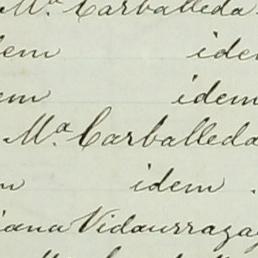 Mª Carballeda
idem
idem
Mª Carballeda
idem .
Vidaurraza